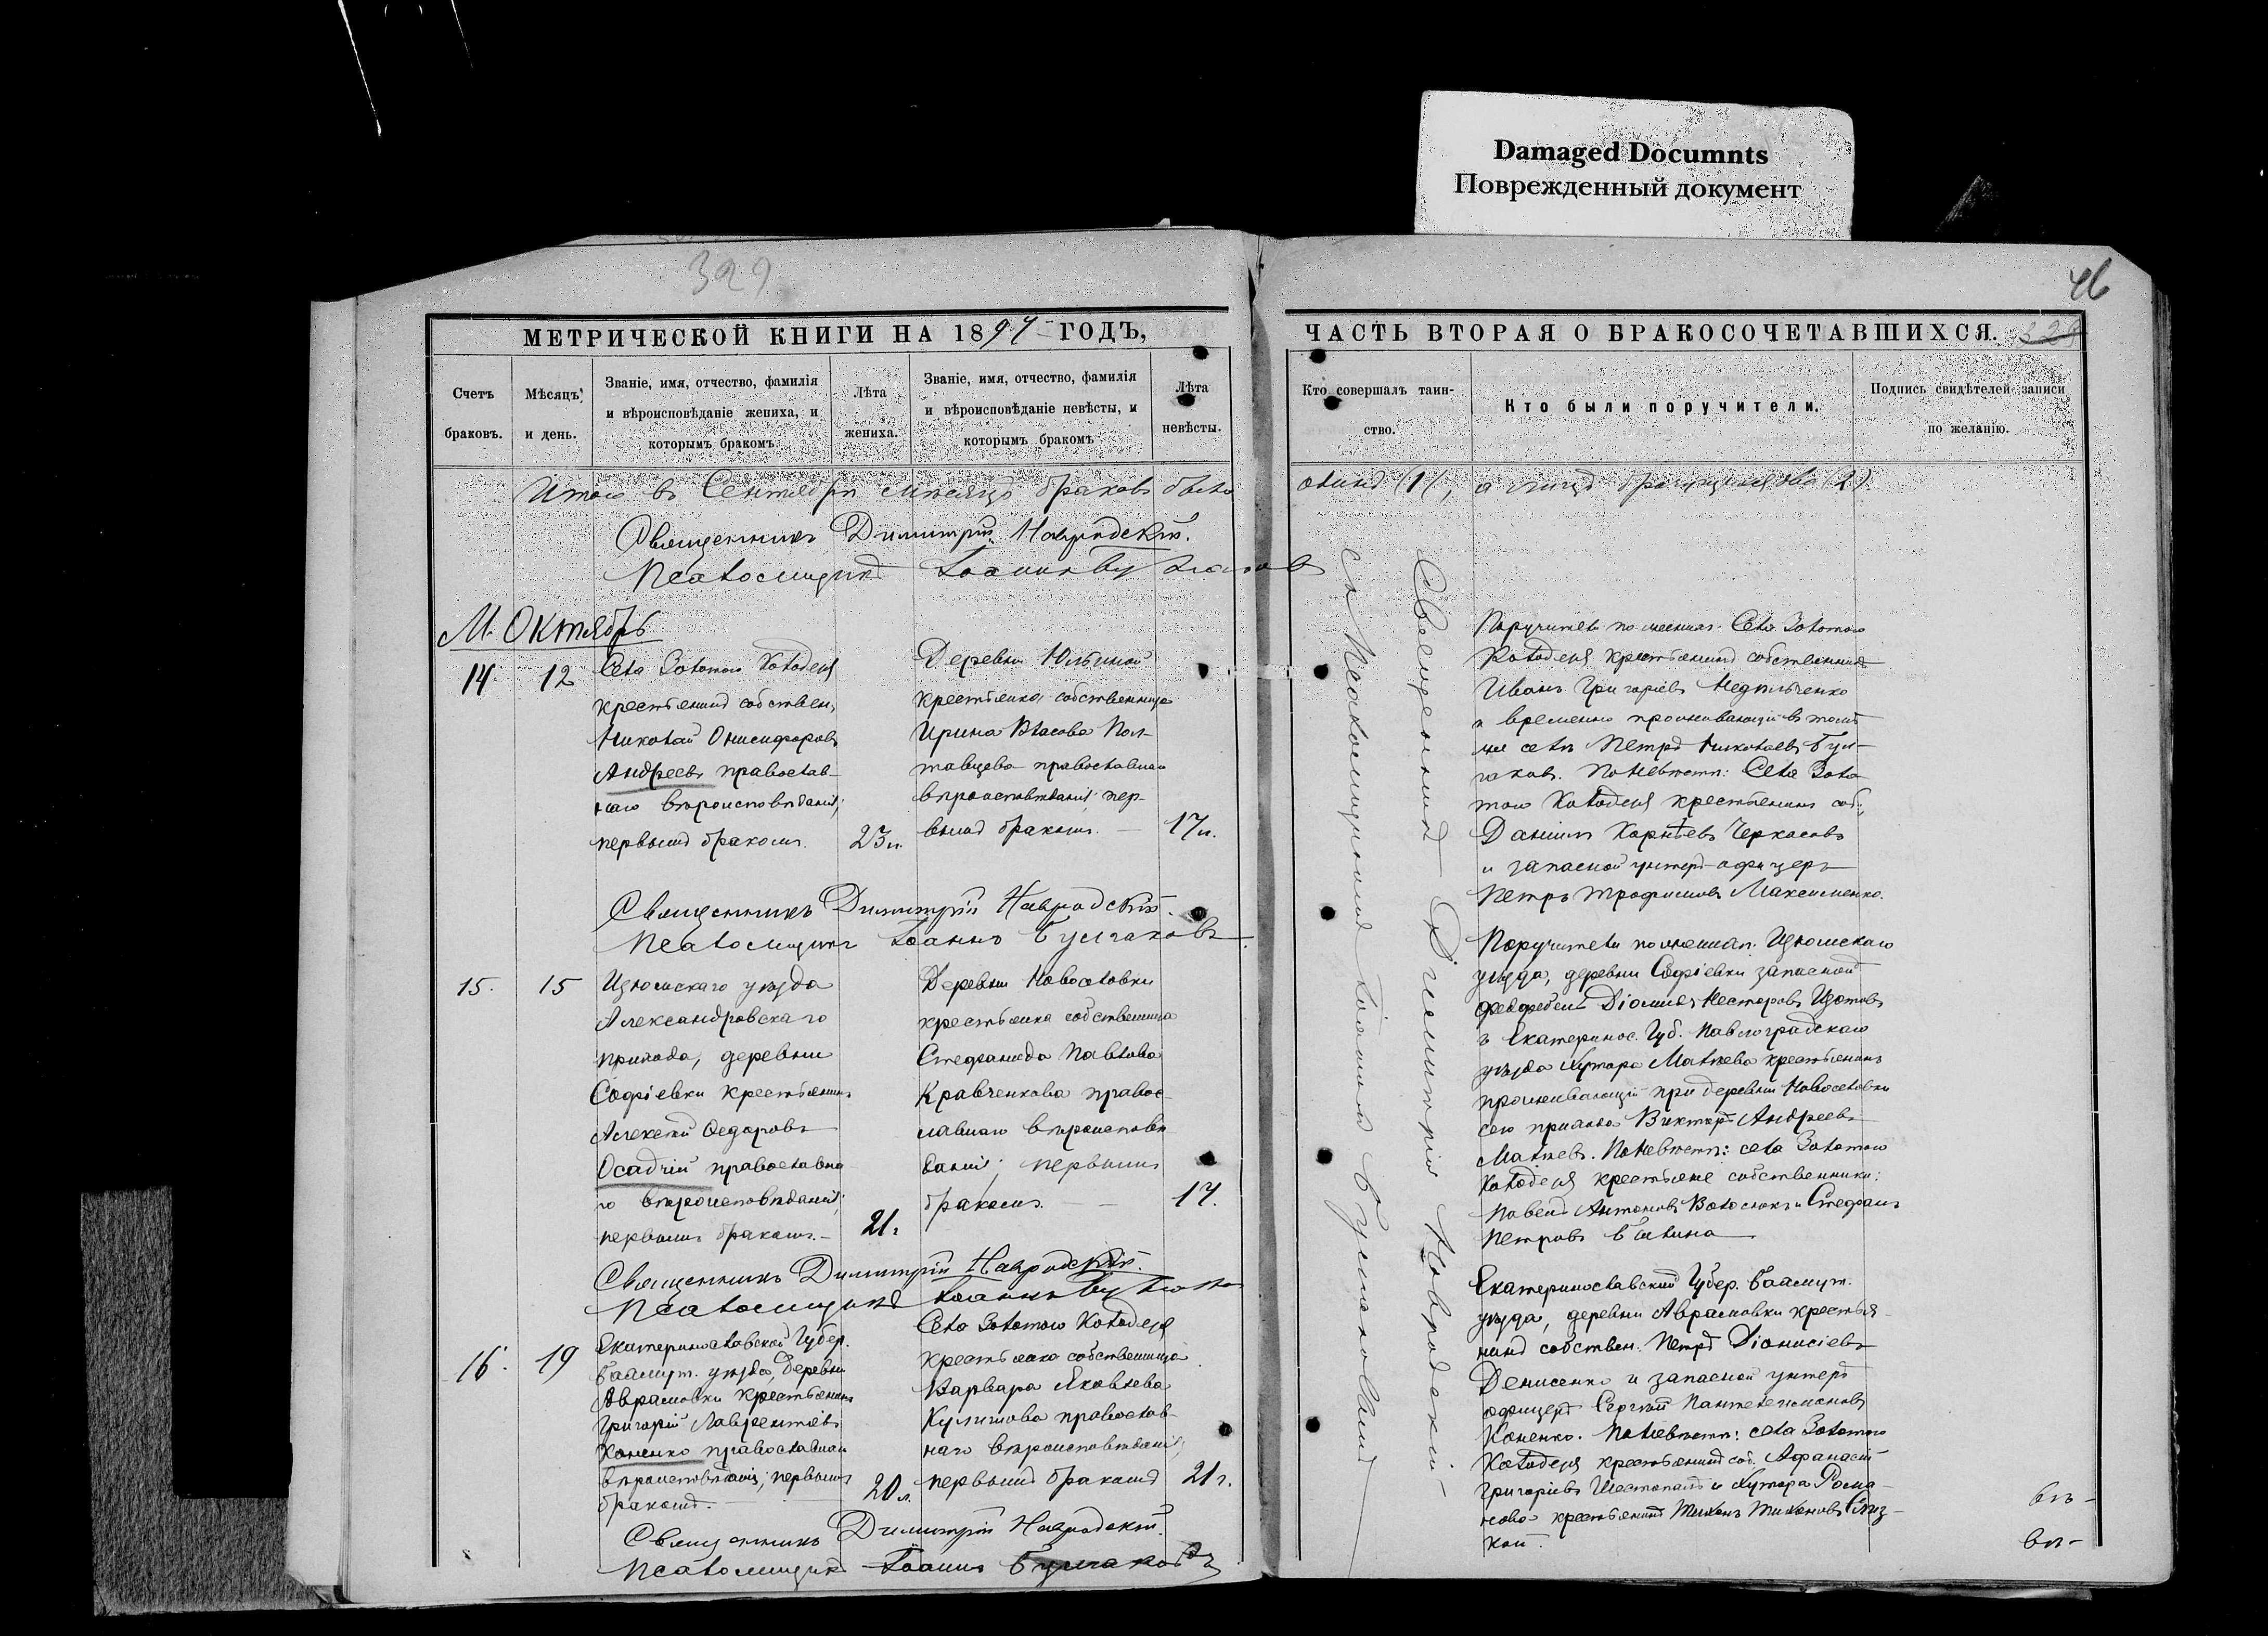 Damaged Documnts
Поврежденный документ
329
46
МЕТРИЧЕСКОЙ КНИГИ НА 1897 ГОДЪ,
Счетъ
браковъ.
Мѣсяцъ
и день.
Званіе, имя, отчество, фамилія
и вѣроисповѣданіе жениха, и
которымъ бракомъ
Лѣта
жениха.
Званіе, имя, отчество, фамилія
и вѣроисповѣданіе невѣсты, и
которымъ бракомъ
Лѣта
невѣсты.
Итого въ Сентябрѣ мѣсяцѣ браковъ было
Священникъ Димитрій Навродскій.
Псаломщикъ Іоаннъ Булгаковъ
М. Октябрь
14
12
Села Золотого Колодезя
крестьянинъ собствен.
Николай Онисифоровъ
Андреевъ православ-
наго вѣроисповѣданія;
первымъ бракомъ.
23 л.
Деревни Юльиной
крестьянка собственница
Ирина Власова Пол-
тавцева православнаго
вѣроисповѣданія; пер-
вымъ бракомъ.
17 л.
Священникъ Димитрій Навродскій.
Псаломщикъ Іоаннъ Булгаковъ
15.
15
Изюмскаго уѣзда
Александровскаго
прихода, деревни
Софіевки крестьянинъ
Алексѣй Ѳедоровъ
Осадчій православна
го вѣроисповѣданія;
первымъ бракомъ.
21.
Деревни Новоселовки
крестьянка собственница
Стефанида Павлова
Кравченкова право-
славнаго вѣроисповѣ
данія; первымъ
бракомъ.
17.
Священникъ Димитрій Навродскій.
Псаломщикъ Іоаннъ Булгаковъ
16.
19
Екатеринославской Губер.
Бахмут. уѣзда, деревни
Аврамовки крестьянинъ
Григорій Лаврентіевъ
Коненко православнаго
вѣроисповѣданія; первымъ
бракомъ.
20 л.
Села Золотого Колодезя
крестьянка собственница
Варвара Яковлева
Кулишова православ-
наго вѣроисповѣданія;
первымъ бракомъ
21 г.
Священникъ Димитрій Навродскій.
Псаломщикъ Іоаннъ Булгаковъ
ЧАСТЬ ВТОРАЯ О БРАКОСОЧЕТАВШИХСЯ.
Кто совершалъ таин-
ство.
Кто были поручители.
Подпись свидѣтелей записи
по желанію.
одинъ (1), а лицъ два (2).
Священникъ Димитрій Навродскій
съ Псаломщикомъ Іоанномъ Булгаковымъ
Поручители по женихѣ: Села Золотого
Колодезя крестьянинъ собственникъ
Иванъ Григоріевъ Недѣльченко
и временно проживающій въ томъ
же селѣ Петръ Николаевъ Бул-
гаковъ. По невѣстѣ: Села Золо
того Колодезя крестьянинъ соб.
Даніилъ Карпѣевъ Черкасовъ
и запасной унтеръ-офицеръ
Петръ Трофимовъ Максименко.
Поручители по женихѣ: Изюмскаго
уѣзда, деревни Софіевки запасной
фельдфебель Несторовъ Изотовъ
и Екатеринос. Губ. Павлоградскаго
уѣзда хутора Матвѣева крестьянинъ
проживающій при деревни Новоселовки
сего прихода Викторъ Андреевъ
Матвѣевъ. По невѣстѣ: села Золотого
Колодезя крестьяне собственники:
Павелъ Антоновъ и Стефанъ
Петровъ
Екатеринославской Губер. Бахмут.
уѣзда, деревни Аврамовки крестья-
нинъ собствен. Петръ Діонисіевъ
Денисенко и запасной унтеръ
офицеръ Сергѣй Пантелеимоновъ
Коненко. По невѣстѣ: села Золотого
Колодезя крестьянинъ соб. Афанасій
Григоріевъ Шестопалъ и хутора Рома-
нова крестьянинъ Тихонъ Тихоновъ